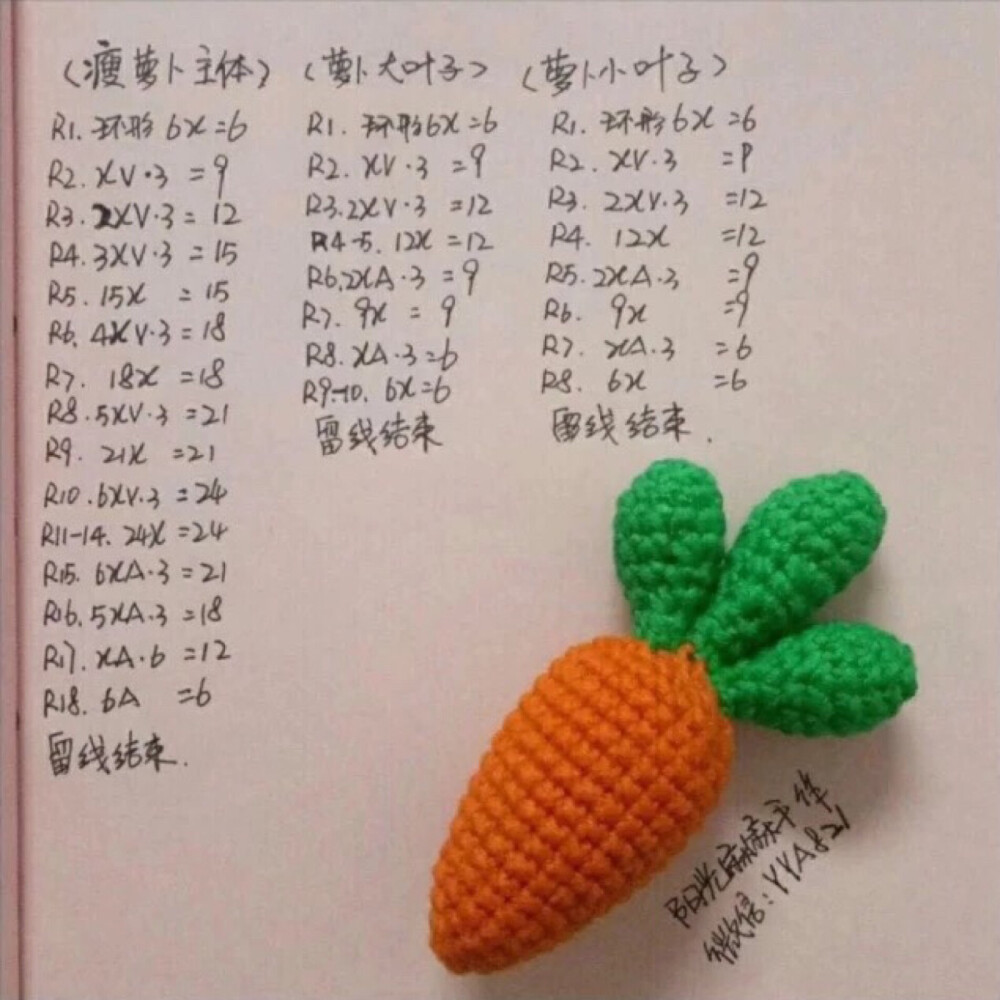 （瘦萝卜主体）
R1. 环形 6X=6
R2. XV·3 =9
R3. 2XV·3= 12
R4. 3XV·3=15
R5. 15X =15
R6. 4XV·3=18
R7. 18X =18
R8. 5XV·3=21
R9. 21X =21
R10. 6XV·3 =24
R11-14. 24X=24
R15. 6XA·3=21
R16. 5XA·3 =18
R17. XA·6 =12
R18. 6A =6
留线结束.
（萝卜大叶子）
R1. 环形6X=6
R2. XV·3 =9
R3. 2XV·3 =12
R4-5. 12X =12
R6. 2XA·3 =9
R7. 9X = 9
R8. XA·3=6
R9-10. 6X=6
留线结束
（萝卜小叶子）
R1. 环形6X=6
R2. XV·3 =9
R3. 2XV·3 =12
R4. 12X =12
R5. 2XA·3 =9
R6. 9X =9
R7. XA·3 =6
R8. 6X =6
留线结束.
微信:YYA821